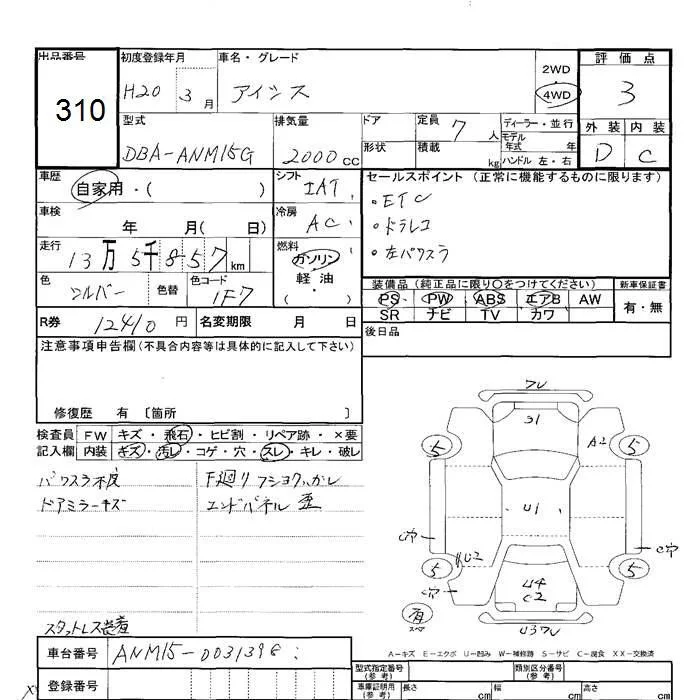 出品番号 初度登録年月 車名・グレード 2WD 評価点
310 H20 3月 アイシス 4WD 3
型式 排気量 ドア 定員 7人 ディーラー・並行 外装 内装
DBA-ANM15G 2000cc 形状 積載 kg モデル年式 年 ハンドル 左・右 D C
車歴 自家用・( ) シフト IAT セールスポイント (正常に機能するものに限ります)
車検 年 月( 日) 冷房 AC
・ETC
・ドラレコ
・左パワスラ
走行 13万5千857km 燃料 ガソリン・軽油・( )
色 シルバー 色替 色コード 1F7
装備品(純正品に限り○をつけてください) 新車保証書
PS PW ABS エアB AW 有・無
SR ナビ TV カワ
R券 12410円 名変期限 月 日 後日品
注意事項申告欄(不具合内容等は具体的に記入して下さい)
修復歴 有 〔箇所 〕
検査員 FW キズ・飛石・ヒビ割・リペア跡・×要
記入欄 内装 キズ・汚レ・コゲ・穴・スレ・キレ・破レ
パワスラ不良 F廻り
ドアミラーキズ エンドパネル 歪
スタットレス装着
フレ
S1
A2
5 5
U1
C穴 C穴
U2
5 5
C穴
U4
C2
有
スペア
A-キズ E-エクボ U-凹み W-補修跡 S-サビ C-腐食 XX-交換済
車台番号 ANM15-0031398
登録番号
型式指定番号(参考) 類別区分番号(参考)
車庫証明用(参考) 長さ cm 幅 cm 高さ cm